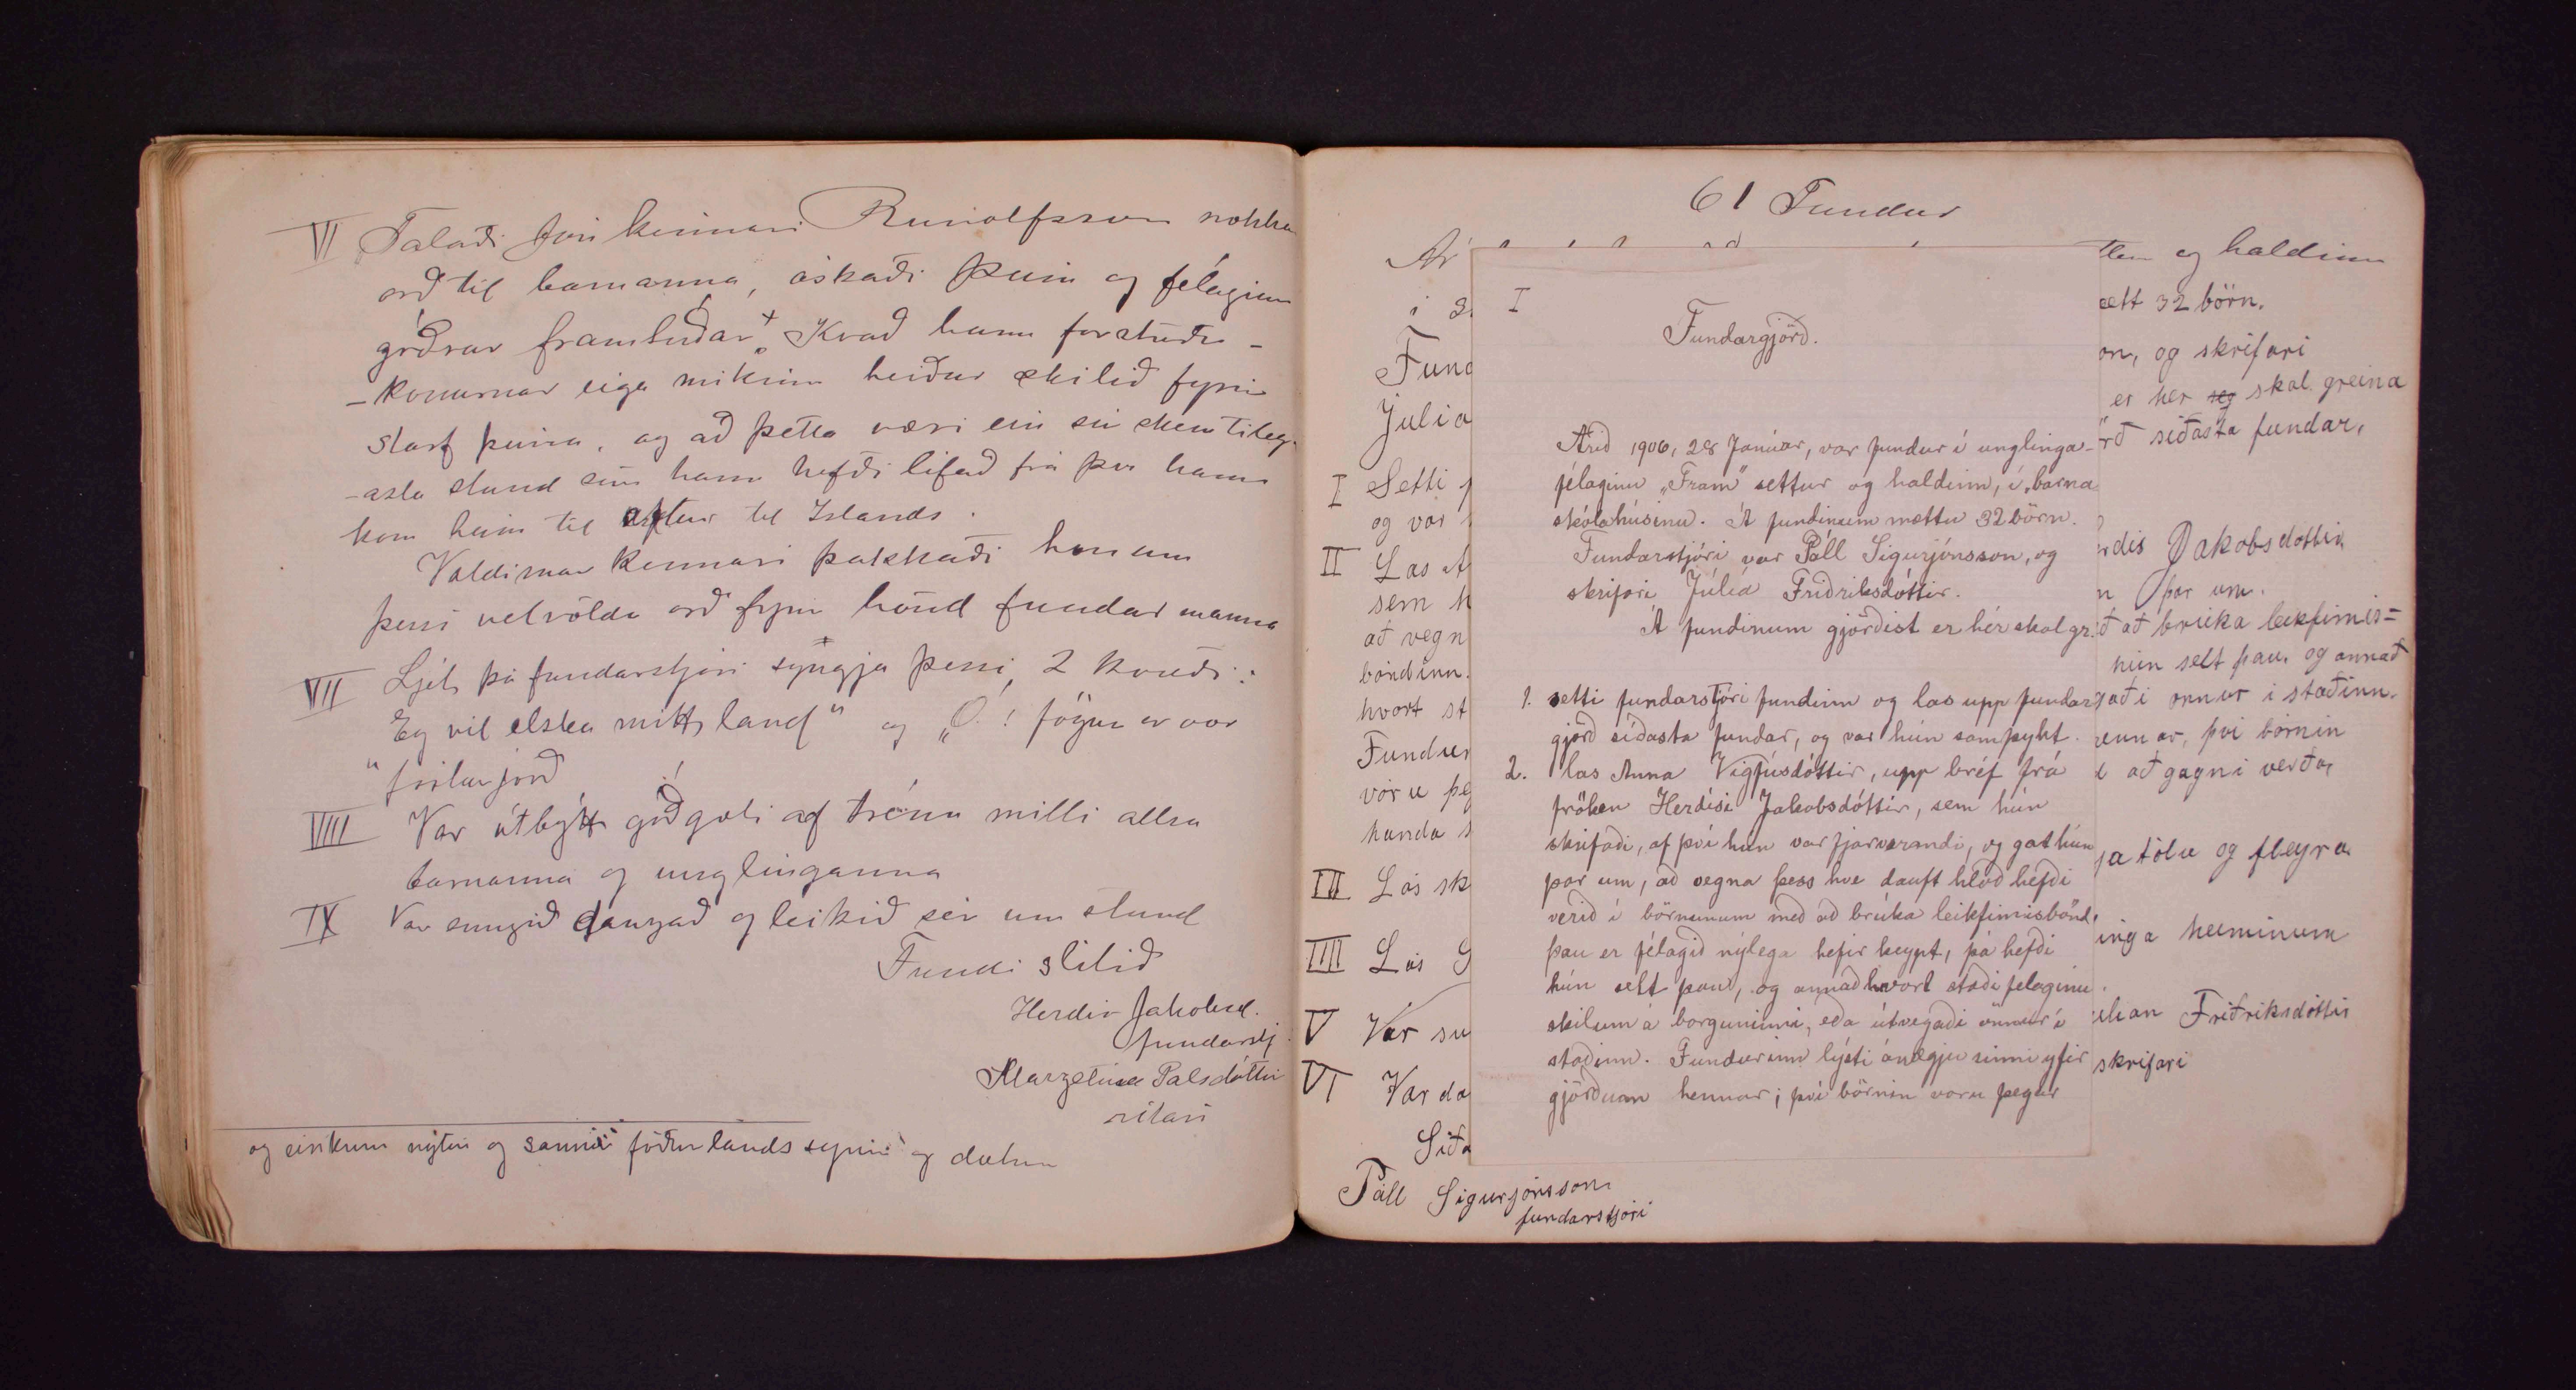 VI Talaði Jón kennari Runolfsson nokkr
orð til barnanna, óskaði þeim og félaginu
góðrar framtíðar + Kvað hann forstöðu-
-konurnar eiga mikinn heiður skilið fyrir
starf þeirra, og að þetta væri ein sú skemtileg-
-asta stund sem hann hefði lifað frá því hann
kom heim til aftur til Islands.
Valdimar Kennari þakkaði honum
þessi velvöldu orð fyrir hönd fundar manna
VII Ljét þá fundarstjóri syngja þessi 2 kvæði:
Eg vil elska mitt land" og „Ó! fögur er vor
" fósturjörð
VIII Var útbýtt góðgæti af trénu milli allra
barnanna og unglinganna
IX Var sungið danzað og leikið sér um stund
Fundi slitið
Herdís Jakobsd.
fundarstj.
Margetina Palsdóttir
ritari
og einkum nýtir og sannir föðurlands synir og dætur
61 Fundur
Ár
tur og haldinn
i
ætt 32 börn.
Fund
on, og skrifari
Julia
er her seg skal greina
I Setti
rð síðasta fundar,
og var
II Las A
rdis Jakobsdóttir
sem h
n þar um.
að vegn
ð að brúka leikfimis=
böndinn.
hún selt þau, og annað
hvort st
gaði onnur i staðinn.
Fundur
ennar, þvi börnin
voru þeg
að gagni verða
handa
III Las sk
ja tölu og fleyra
IIII Las G
inga heiminum
V Var su
ulian Friðriksdóttir
VI Var da
skrifari
Siða
Páll Sigurjónsson
fundarstjóri
I
Fundargjörð.
Árið 1906, 28 Janúar, var fundur í unglinga-
félaginu „Fram" settur og haldinn, í barna
skólahúsinu. Á fundinum mættu 32 börn.
Fundarstjóri var Páll Sigurjónsson, og
skrifari Júlía Friðriksdóttir.
Á fundinum gjörðist er hér skal gr.
1. setti fundarstjóri fundinn og las upp fundar
gjörð síðasta fundar, og var hún samþykt.
2. las Anna Vigfúsdóttir, upp bréf frá
fröken Herdísi Jakobsdóttir, sem hún
skrifaði, af því hún var fjarverandi, og gat hún
þar um, að vegna þess hve dauft hlóð hefði
verið í börnunum með að brúka leikfimisbönd,
þau er félagið nýlega hefir keypt, þá hefði
hún selt þau, og annaðhvort stæði felaginu
skilum á borguninni, eða útvegaði önnur í
staðinn. Fundurinn lýsti ánægju sinni yfir
gjörðum hennar; því börnin voru þegar